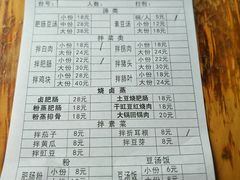 台号： 人数： 打包：
汤类
肥肠豆汤 小份 18元 素豆汤 锅/人 5元
中份 28元 小份 12元
大份 38元 大份 18元
拌菜类
拌白肉 小份 18元 拌拐肉 小份 18元
大份 28元 大份 34元
拌肥肠 小份 18元 拌猪肝 小份 18元
大份 28元 大份 32元
拌鸡块 小份 22元 拌肠叶 小份 24元
大份 40元
烧卤蒸
卤肥肠 28元 土豆烧肥肠 18元
粉蒸肥肠 8元 干豇豆红烧肉 18元
粉蒸排骨 8元 大锅回锅肉 20元
拌素菜
拌茄子 8元 拌折耳根 8元
拌黄瓜 8元 拌豆芽 8元
拌豇豆 8元
粉 豆汤饭
小份 6元
大份 8元